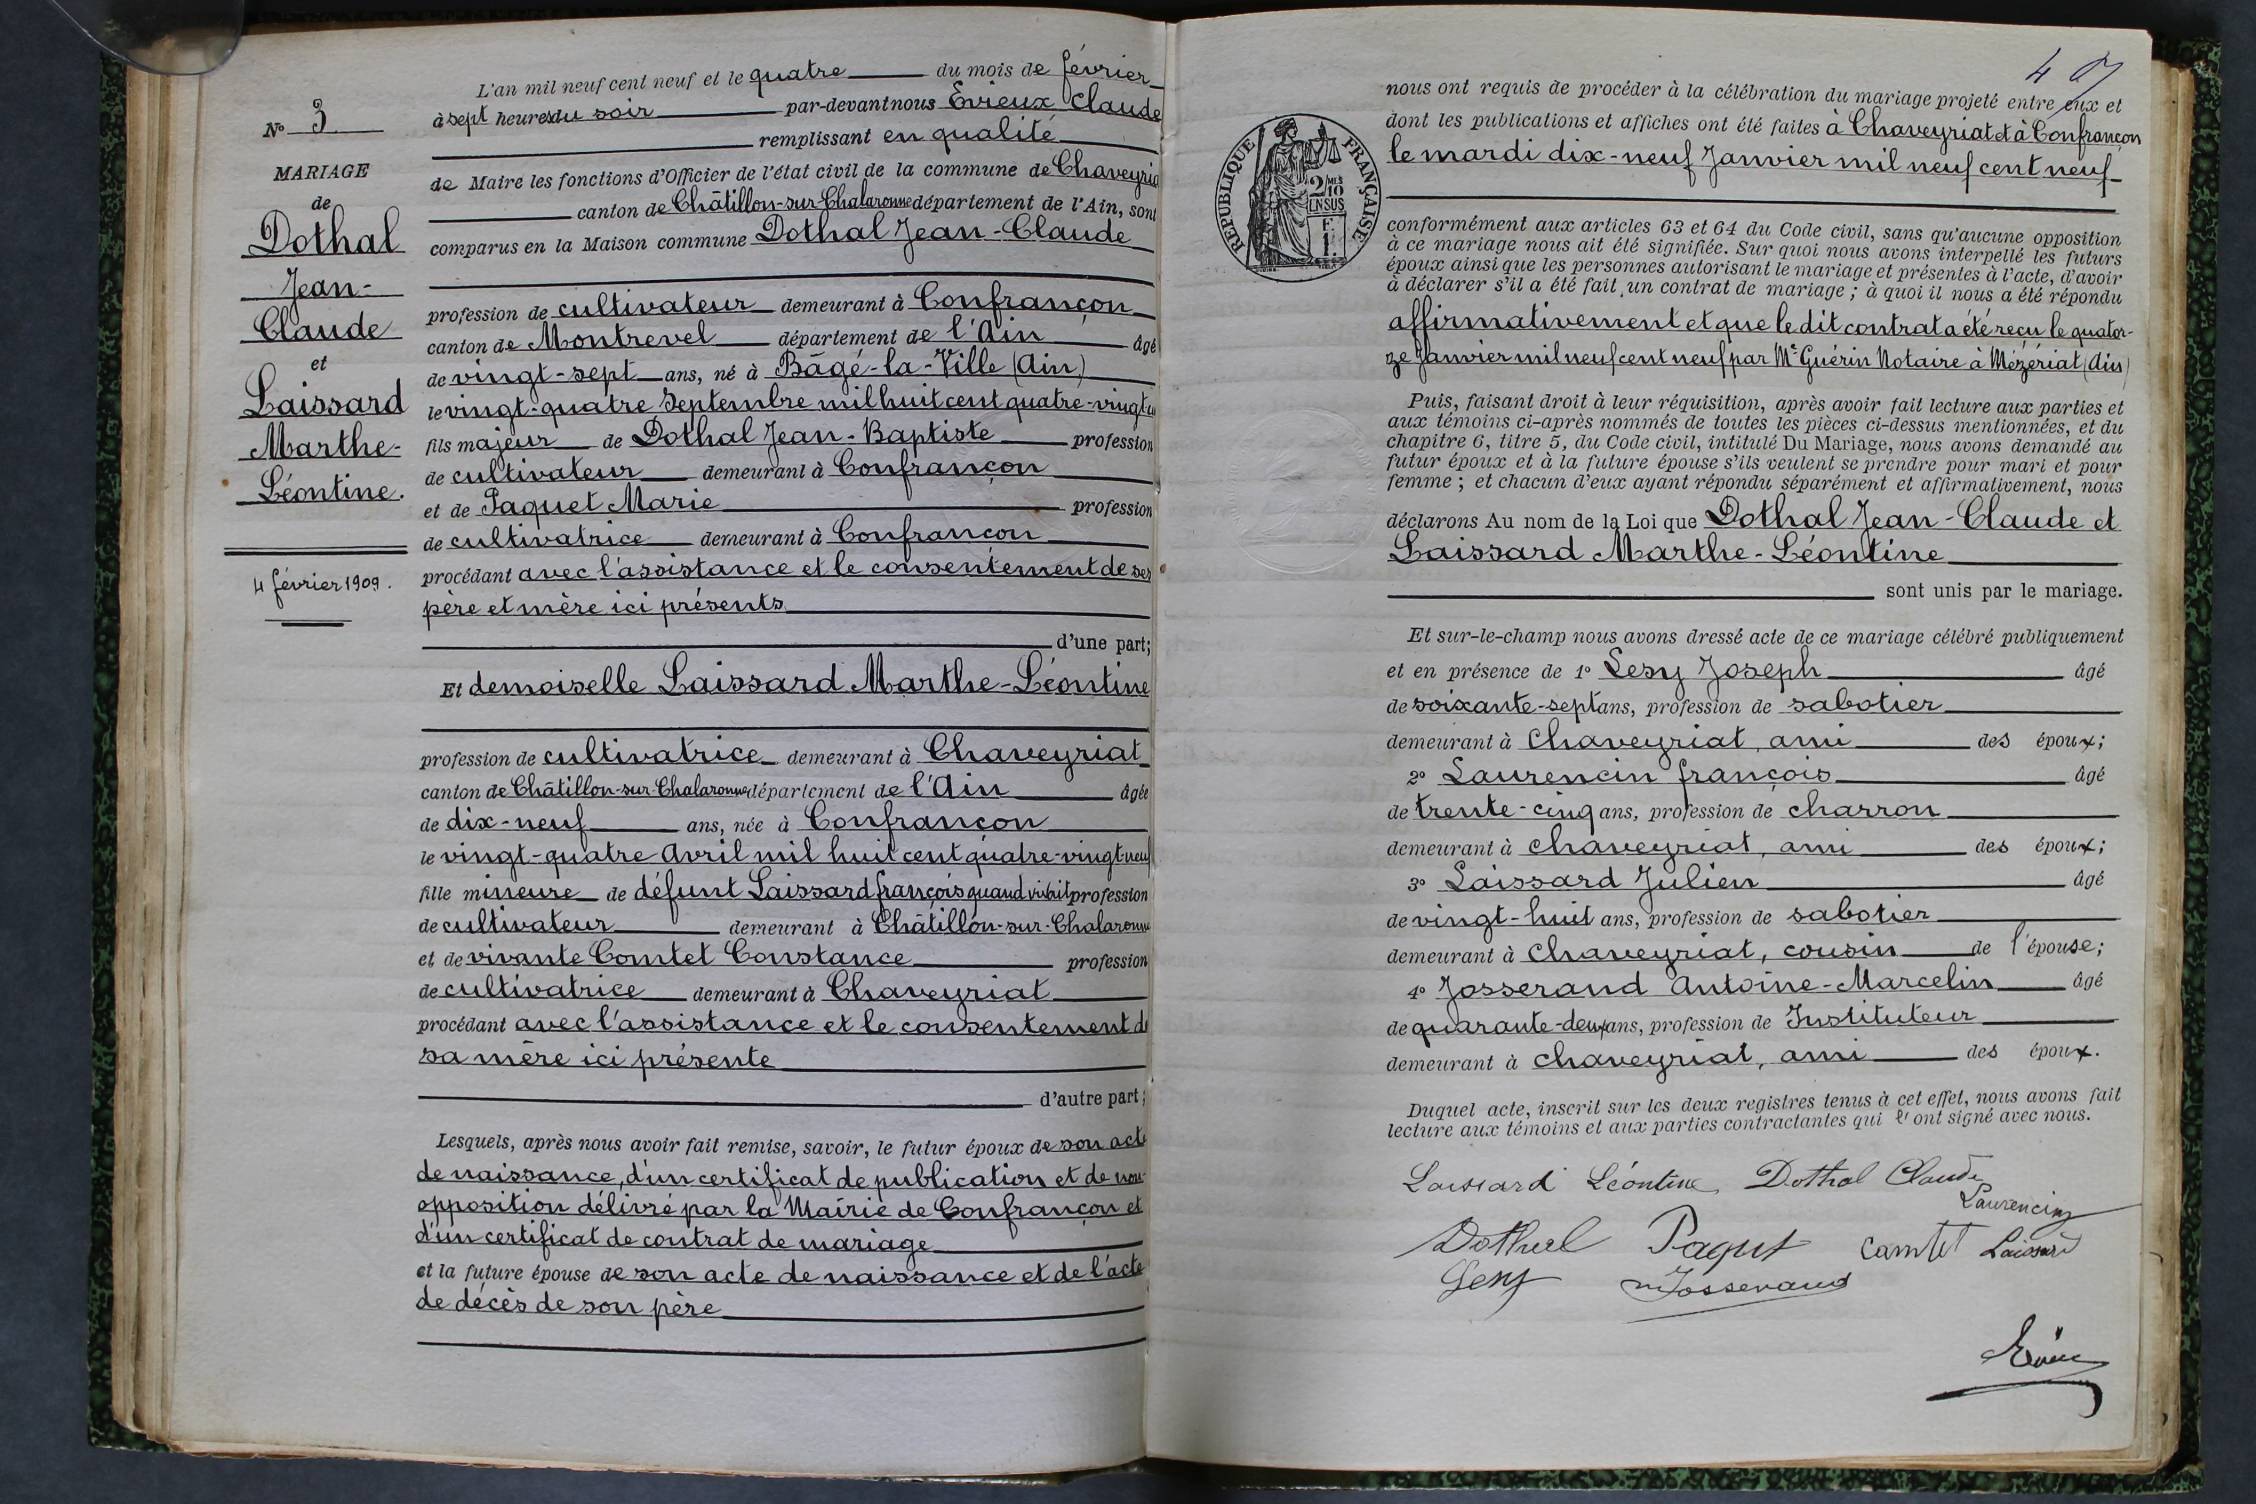 No 3
MARIAGE
de
Dothal
Jean-
Claude
et
Laissard
Marthe-
Léontine.
4 février 1909.
L'an mil neuf cent neuf et le quatre du mois de février
à sept heures du soir par-devant nous Evieux Claude
remplissant en qualité
de Maire les fonctions d'Officier de l'état civil de la commune de Chaveyria
canton de Châtillon-sur-Chalaronne département de l'Ain, sont
comparus en la Maison commune Dothal Jean-Claude
profession de cultivateur demeurant à Confrançon
canton de Montrevel département de l'Ain âgé
de vingt-sept ans, né à Bâgé-la-Ville (Ain)
le vingt-quatre Septembre mil huit cent quatre-vingt-u
fils majeur de Dothal Jean-Baptiste profession
de cultivateur demeurant à Confrançon
et de Paquet Marie profession
de cultivatrice demeurant à Confrancon
procédant avec l'assistance et le consentement de ses
père et mère ici présents
d'une part;
Et demoiselle Laissard Marthe-Léontine
profession de cultivatrice demeurant à Chaveyriat
canton de Châtillon-sur-Chalaronne département de l'Ain âgée
de dix-neuf ans, née à Confrançon
le vingt-quatre Avril mil huit cent quatre-vingt-neuf
fille mineure de défunt Laissard françois quand vivait profession
de cultivateur demeurant à Châtillon-sur-Chalaronne
et de vivante Comtet Constance profession
de cultivatrice demeurant à Chaveyriat
procédant avec l'assistance et le consentement de
sa mère ici présente
d'autre part;
Lesquels, après nous avoir fait remise, savoir, le futur époux de son acte
de naissance, d'un certificat de publication et de non-
opposition délivré par la Mairie de Confrançon et
d'un certificat de contrat de mariage
et la future épouse de son acte de naissance et de l'acte
de décès de son père
4
nous ont requis de procéder à la célébration du mariage projeté entre eux et
dont les publications et affiches ont été faites à Chaveyriat et à Confrançon
le mardi dix-neuf Janvier mil neuf cent neuf
RÉPUBLIQUE FRANÇAISE
2/10
EN SUS
F.
1.
conformément aux articles 63 et 64 du Code civil, sans qu'aucune opposition
à ce mariage nous ait été signifiée. Sur quoi nous avons interpellé les futurs
époux ainsi que les personnes autorisant le mariage et présentes à l'acte, d'avoir
à déclarer s'il a été fait un contrat de mariage ; à quoi il nous a été répondu
affirmativement et que le dit contrat a été reçu le quator-
ze Janvier mil neuf cent neuf par Me Guérin Notaire à Mézériat (Ain)
Puis, faisant droit à leur réquisition, après avoir fait lecture aux parties et
aux témoins ci-après nommés de toutes les pièces ci-dessus mentionnées, et du
chapitre 6, titre 5, du Code civil, intitulé Du Mariage, nous avons demandé au
futur époux et à la future épouse s'ils veulent se prendre pour mari et pour
femme ; et chacun d'eux ayant répondu séparément et affirmativement, nous
déclarons Au nom de la Loi que Dothal Jean-Claude et
Laissard Marthe-Léontine
sont unis par le mariage.
Et sur-le-champ nous avons dressé acte de ce mariage célébré publiquement
et en présence de 1o Lesy Joseph âgé
de soixante-sept ans, profession de sabotier
demeurant à Chaveyriat, ami des époux;
2o Laurencin françois âgé
de trente-cinq ans, profession de charron
demeurant à Chaveyriat, ami des époux;
3o Laissard Julien âgé
de vingt-huit ans, profession de sabotier
demeurant à Chaveyriat, cousin de l'épouse;
4o Josserand Antoine-Marcelin âgé
de quarante-deux ans, profession de Instituteur
demeurant à Chaveyriat, ami des époux.
Duquel acte, inscrit sur les deux registres tenus à cet effet, nous avons fait
lecture aux témoins et aux parties contractantes qui l'ont signé avec nous.
Laissard Léontine Dothal Claude
Laurencin
Dothal Paquet Comtet Laissard
Lesy Josserand
Evieux